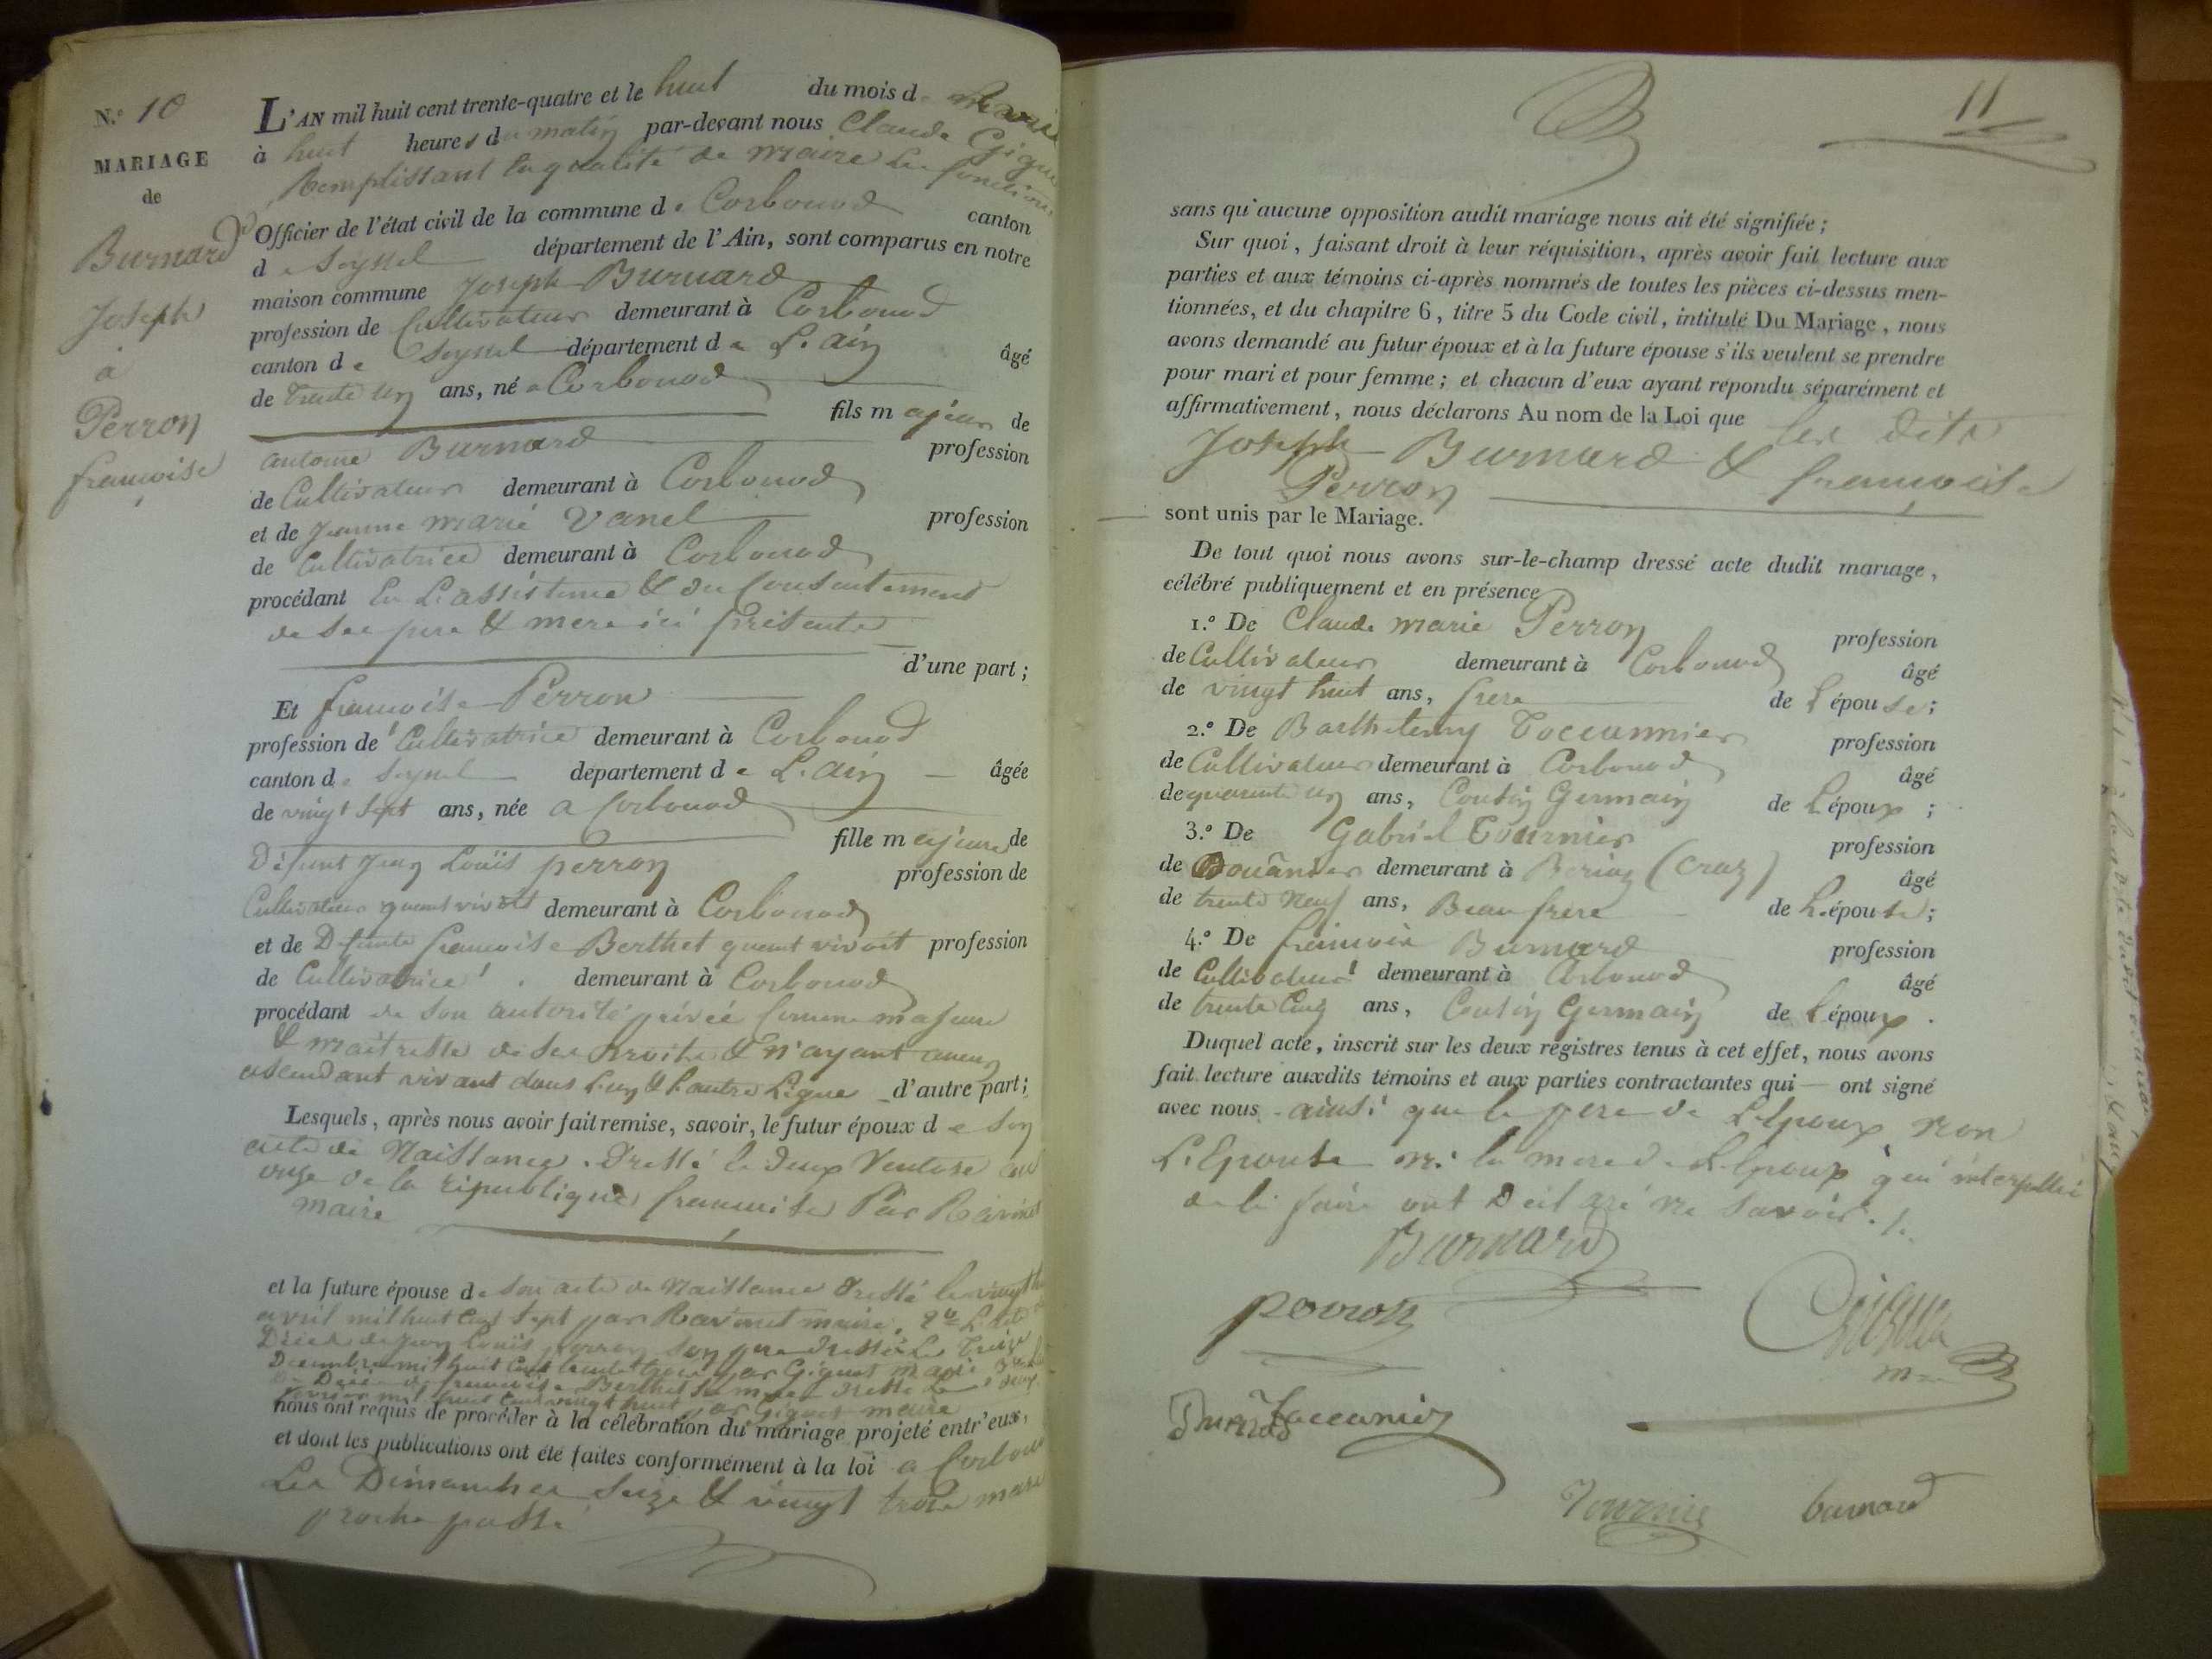 N.º 10
MARIAGE
de
Burnard
Joseph
a
Perron
francoise
L'AN mil huit cent trente-quatre et le huit du mois d
à huit heures du matin par-devant nous Claude
Remplissant la qualité de maire les fonctions
Officier de l'état civil de la commune de Corbonod canton
de Seyssel département de l'Ain, sont comparus en notre
maison commune Joseph Burnard
profession de Cultivateur demeurant à Corbonod
canton de Seyssel département de L'ain âgé
de trente un ans, né a Corbonod
fils majeur de
antoine Burnard profession
de Cultivateur demeurant à Corbonod
et de Jeanne marie Vanel profession
de Cultivatrice demeurant à Corbonod
procédant En L'assistance & du Consentement
de ses pere & mere ici présents
d'une part ;
Et francoise Perron
profession de Cultivatrice demeurant à Corbonod
canton de Seyssel département de L'ain âgée
de vingt sept ans, née a Corbonod
fille majeure de
Défunt Jean Louis perron profession de
Cultivateur quand vivoit demeurant à Corbonod
et de Défunte francoise Berthet quand vivoit profession
de Cultivatrice demeurant à Corbonod
procédant de son autorité privée comme majeure
& maitresse de ses Droits & n'ayant aucun
ascendant vivant dans L'un & L'autre Ligne d'autre part ;
Lesquels, après nous avoir fait remise, savoir, le futur époux de son
acte de Naissance Dressé le Deux Ventose an
onze de la République francaise Par Ravinet
maire
et la future épouse de son acte de Naissance Dressé le vingt
avril mil huit Cent Sept par Ravinet maire. 2º L'acte
Décès de Jean Louis perron son pere dressé Le treize
Décembre mil huit Cent trente trois par Giguet maire
Décès de francoise Berthet sa mere dressé Le deux
fevrier mil huit Cent vingt huit par Giguet maire
nous ont requis de procéder à la célébration du mariage projeté entr'eux,
et dont les publications ont été faites conformément à la loi a
Les Dimanches Seize & vingt trois mars
proche passé
11
sans qu'aucune opposition audit mariage nous ait été signifiée ;
Sur quoi, faisant droit à leur réquisition, après avoir fait lecture aux
parties et aux témoins ci-après nommés de toutes les pièces ci-dessus men-
tionnées, et du chapitre 6, titre 5 du Code civil, intitulé Du Mariage, nous
avons demandé au futur époux et à la future épouse s'ils veulent se prendre
pour mari et pour femme ; et chacun d'eux ayant répondu séparément et
affirmativement, nous déclarons Au nom de la Loi que les dits
Joseph Burnard & francoise
Perron
sont unis par le Mariage.
De tout quoi nous avons sur-le-champ dressé acte dudit mariage,
célébré publiquement et en présence
1.º De Claude marie Perron profession
de Cultivateur demeurant à Corbonod âgé
de vingt huit ans, frere de L'épouse ;
2.º De Barthelemy Toccannier profession
de Cultivateur demeurant à Corbonod âgé
de quarante un ans, Cousin Germain de L'époux ;
3.º De Gabriel Tournier profession
de Douânier demeurant à (Craz) âgé
de trente Neuf ans, Beau frere de L'épouse ;
4.º De francois Burnard profession
de Cultivateur demeurant à Corbonod âgé
de trente Cinq ans, Cousin Germain de L'époux .
Duquel acte, inscrit sur les deux régistres tenus à cet effet, nous avons
fait lecture auxdits témoins et aux parties contractantes qui — ont signé
avec nous ainsi que le pere de L'Epoux non
L'Epouse ni la mere de L'Epoux qui interpellé
de le faire ont Déclaré ne Savoir.
Burnard
perron
Burnard Toccanier
Tournier burnard